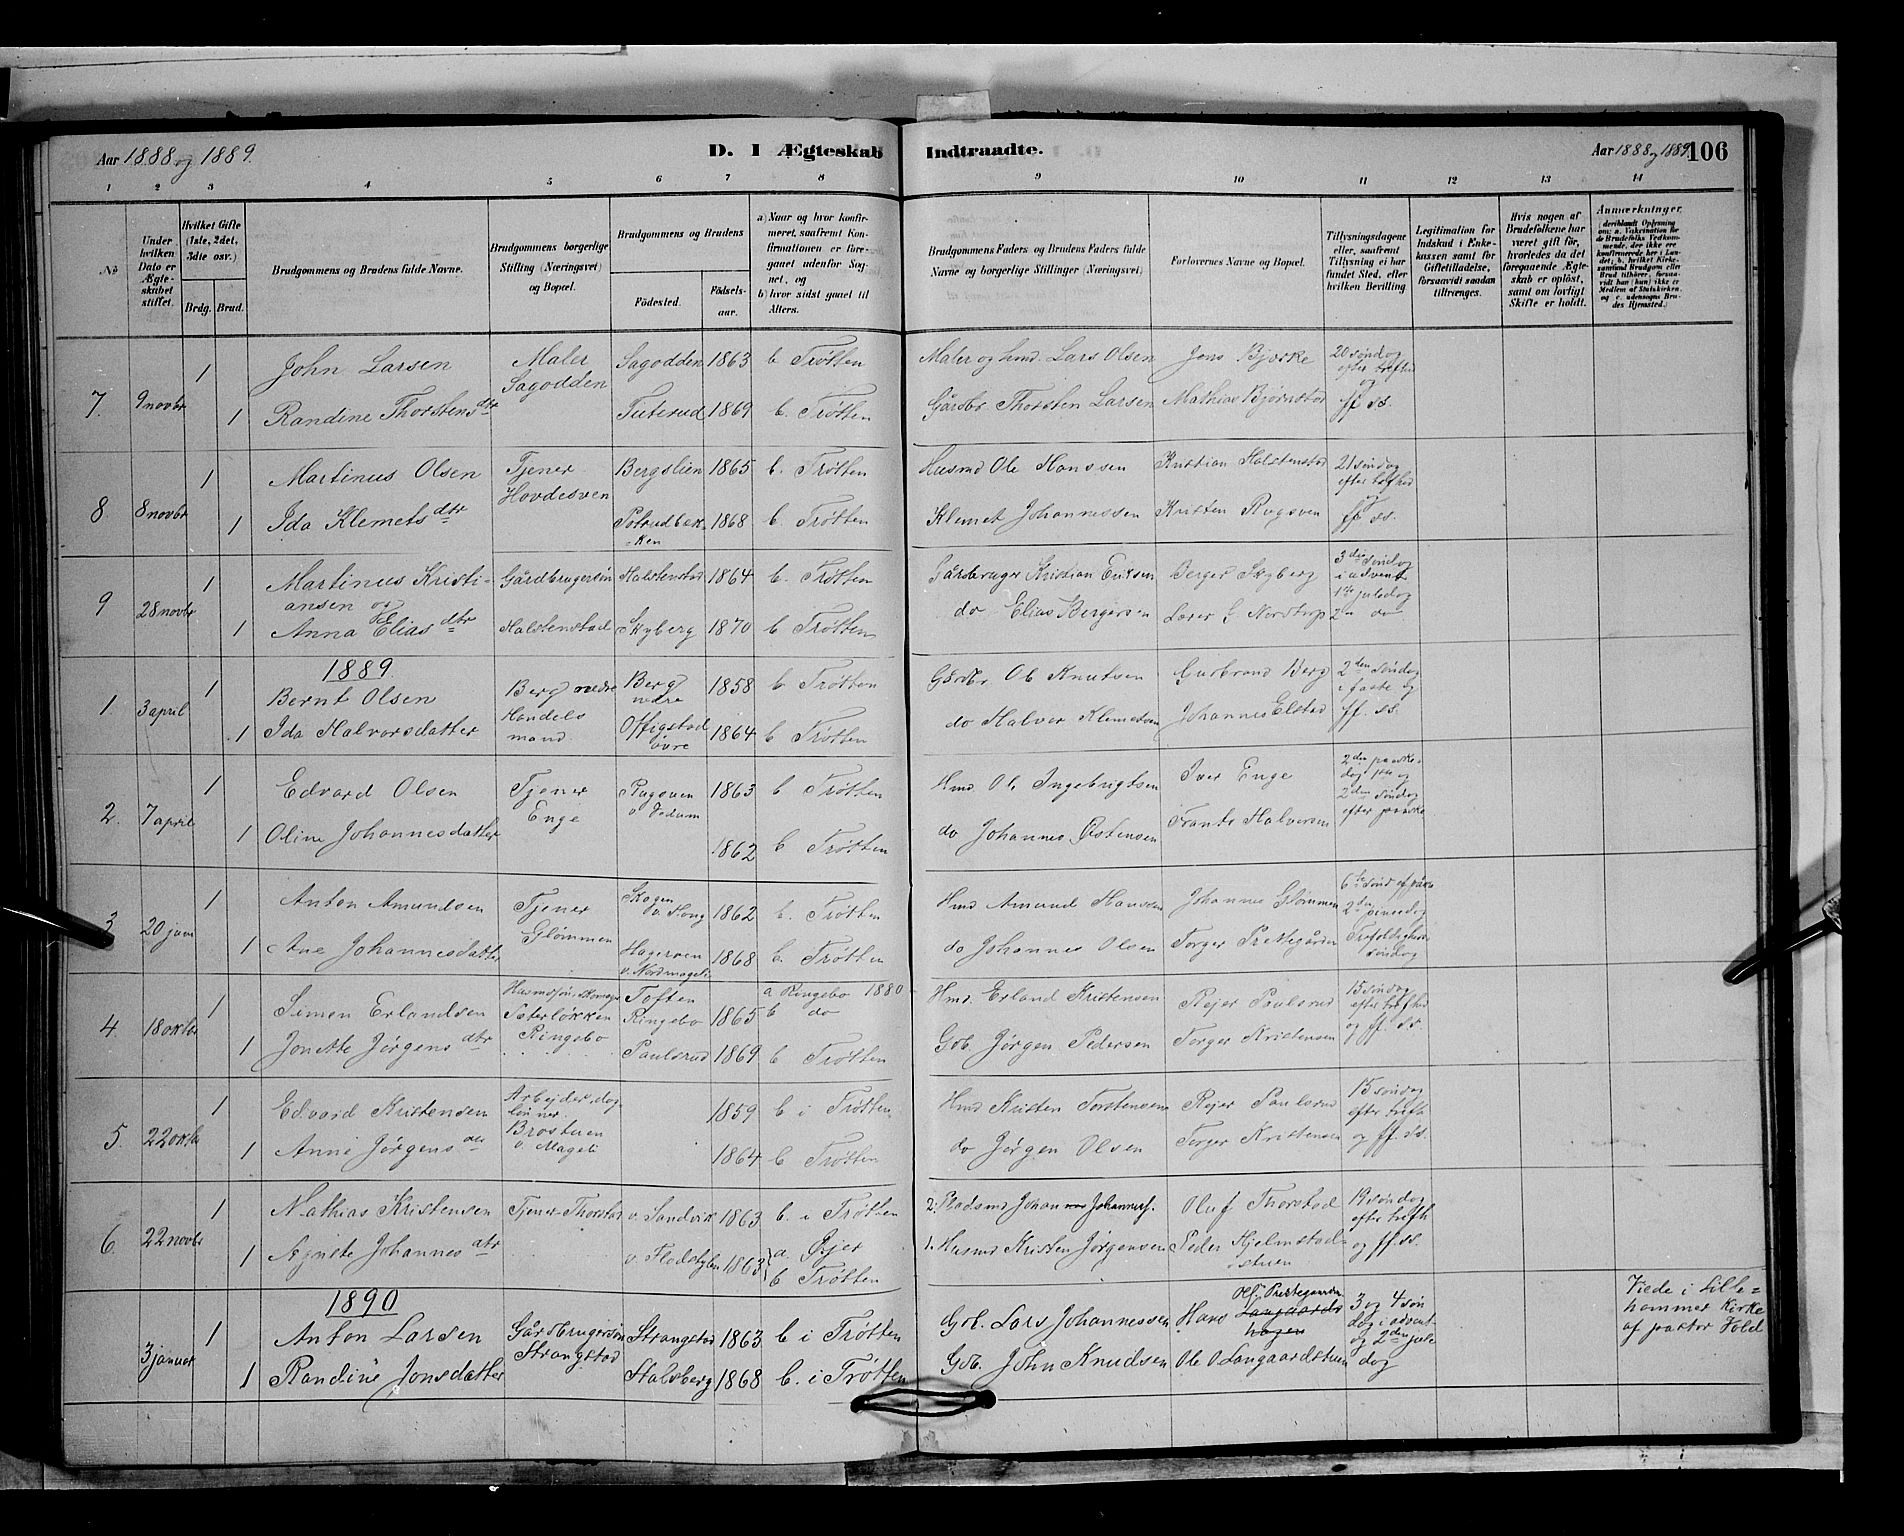 Aar 1888 og 1889. D. I Ægteskab Indtraadte. Aar 1888 og 1889. 106
1 2 3 4 5 6 7 8 9 10 11 12 13 14
No
Under hvilken Dato er Ægteskabet stiftet.
Hvilket Gifte (1ste, 2det, 3dte osv.)
Brdg. Brud.
Brudgommens og Brudens fulde Navne.
Brudgommens borgerlige Stilling (Næringsvei) og Bopæl.
Brudgommens og Brudens
Födested. Födsels-aar.
a) Naar og hvor konfirmeret, saafremt Konfirmationen er foregaaet udenfor Sognet, og
b) hvor sidst gaaet til Alters.
Brudgommens Faders og Brudens Faders fulde Navne og borgerlige Stillinger (Næringsvei)
Forlovernes Navne og Bopæl.
Tillysningsdagene eller, saafremt Tillysning ei har fundet Sted, efter hvilken Bevilling
Legitimation for Indskud i Enkekassen samt for Giftetilladelse, forsaavidt saadan tiltrænges.
Hvis nogen af Brudefolkene har været gift för, hvorledes da det foregaaende Ægteskab er oplöst, samt om lovligt Skifte er holdt.
Anmærkninger,
7. 9 novbr 1 John Larsen Maler Sagodden Sagodden 1863 b Trøtten Maler og hmd. Lars Olsen Jens Bjerke 20 søndag efter trefhed og
1 Randine Thorstensdtr Tuterud 1869 b. Trøtten Gårdbr. Thorsten Larsen Mathias Bjørnstad ff ss.
8. 8 novbr 1 Martinus Olsen Tjener Hovdesven Bergslien 1865 b. Trøtten Husmd Ole Hanssen Kristian Halstenstad 21 søndag efter trefhed
1 Ida Klemetsdtr Potrudbakken 1868 b. Trøtten Klemet Johannessen Kristen Rugsven ff ss.
9 28 novbr 1 Martinus Kristiansen og Gårdbrugersøn Halstenstad 1864 b. Trøtten Gårdbruger Kristian Eriksen Berger Skyberg 3die søndag i advent
1 Anna Eliasdtr Halstenstad Skyberg 1870 b Trøtten do Elias Bergersen Lærer G. Nordtorp 1ste juledag 2n do
1889
1. 3 april 1 Bernt Olsen Berg nedre Handelsmand. Berg nedre 1858 b Trøtten Gårdbr Ole Knutsen Gudbrand Berg 2den søndag i faste og
1 Ida Halvorsdatter Offigstad øvre 1864 b Trøtten do Halvor Klemetsen Johannes Elstad ff. ss.
2. 7 april 1 Edvard Olsen Tjener Enge Rugsven v. Jedum 1863 b Trøtten Hmd Ole Ingebrigtsen Iver Enge 2den paaskedag og
1 Oline Johannesdatter 1862 b Trøtten do Johannes Østensen Frants Halvorsen 2den søndag efter paaske
3 20 juni 1 Anton Amundsen Tjener Glømmen Skogen v. Hong 1862 b. Trøtten Hmd Amund Hansen Johannes Glømmen 6te sønd ef påske
1 Ane Johannesdatter Hagesven v. Nordmageli 1868 b. Trøtten do Johannes Olsen Torger Prestegården 2den pinsedag Trefoldigheds søndag
4. 18 oktbr 1 Simen Erlandsen Sæterløkken Ringebo Toften Ringebo 1865 a Ringebo 1880 b do Hmd. Erland Kristensen Rejer Paulsrud 15 søndag efter trefhed
1 Jonette Jørgensdtr Paulsrud 1869 b Trøtten Gb. Jørgen Pedersen Torger Kristensen og ff. ss.
5. 22 oktbr 1 Edvard Kristensen Arbejder, daglønner. Brostuen v. Mageli 1859 b i Trøtten Hmd Kristen Torstensen Rejer Paulsrud 15 søndag efter trefh
1 Anne Jørgensdtr 1864 b Trøtten do Jørgen Olsen Torger Kristensen og ff. ss.
6. 22 novbr 1 Mathias Kristensen Tjener Thorstad v. Sandvik 1863 b. i Trøtten 2. Pladsmd Johannes Johannesf. Oluf Thorstad 19 søndag efter trefh
1 Agnete Johannesdtr v. Flodstylen 1863 a. Øjer b Trøtten 1. Husmd Kristen Jørgensen Peder Hjelmstadstuen og ff. ss.
1890
3 januar 1 Anton Larsen Gårdbrugersøn Strangstad Strangstad 1863 b i Trøtten Gb. Lars Johannessen Hans Ols. Prestegaarden Langaardshagen 3 og 4 søndag i advent og 2den juledag Viede i Lillehammer Kirke af pastor Hold
1 Randine Jonsdatter Stalsberg 1868 b. i Trøtten Gb. John Knudsen Ole O. Langaardstuen